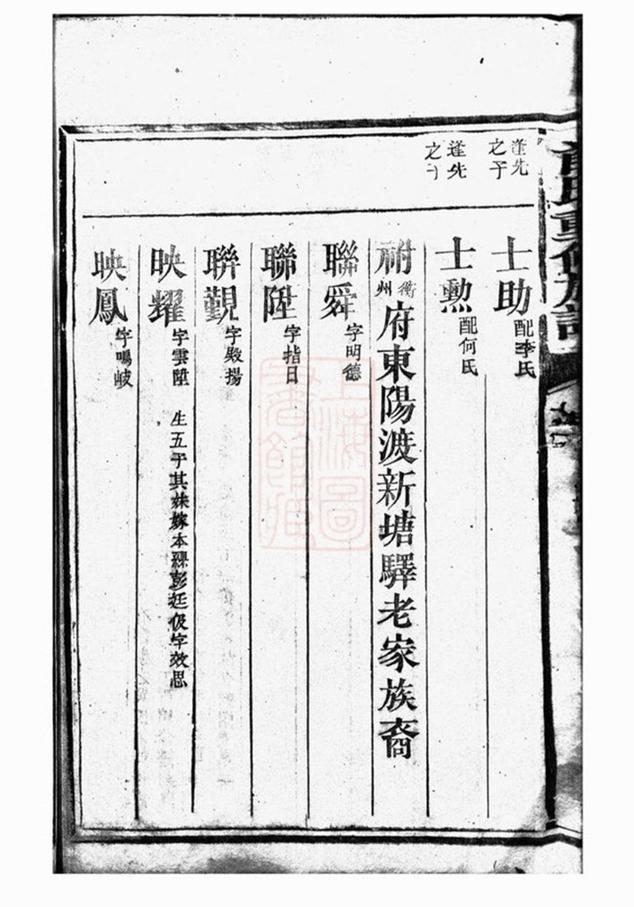 逢先之子
士助 配李氏
逢先之子
士勲 配何氏
祔衡州府東陽渡新塘驛老家族裔
聯舜 字明德
聯陞 字指日
聯覲 字殿揚
映耀 字雲陞 生五子其妹嫁本縣彭廷伋字效思
映鳳 字鳴岐
氏重修族譜
上海圖書館藏